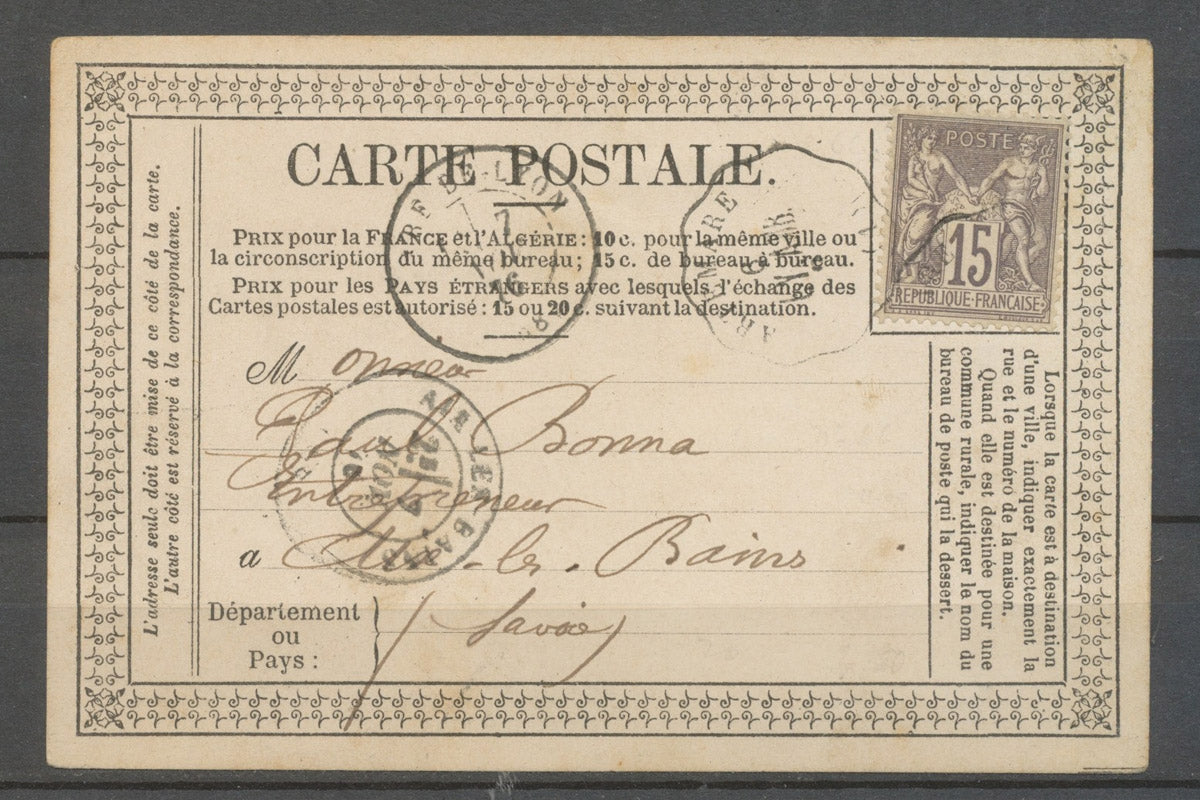 CARTE POSTALE.
POSTE
15
RÉPUBLIQUE FRANÇAISE
PRIX pour la FRANCE et l'ALGÉRIE : 10 c. pour la même ville ou
la circonscription du même bureau ; 15 c. de bureau à bureau.
PRIX pour les PAYS ÉTRANGERS avec lesquels l'échange des
Cartes postales est autorisé : 15 ou 20 c. suivant la destination.
RE DE LYON
7
76
Monsieur
Paul Bonna
Entrepreneur
a Aix-les-Bains
Département
ou
Pays :
(Savoie)
AIX LES BAINS
NOV
L'adresse seule doit être mise de ce côté de la carte.
L'autre côté est réservé à la correspondance.
Lorsque la carte est à destination
d'une ville, indiquer exactement la
rue et le numéro de la maison.
Quand elle est destinée pour une
commune rurale, indiquer le nom du
bureau de poste qui la dessert.